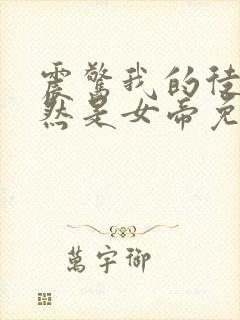 震驚我的徒
然是女帝免
萬宇御